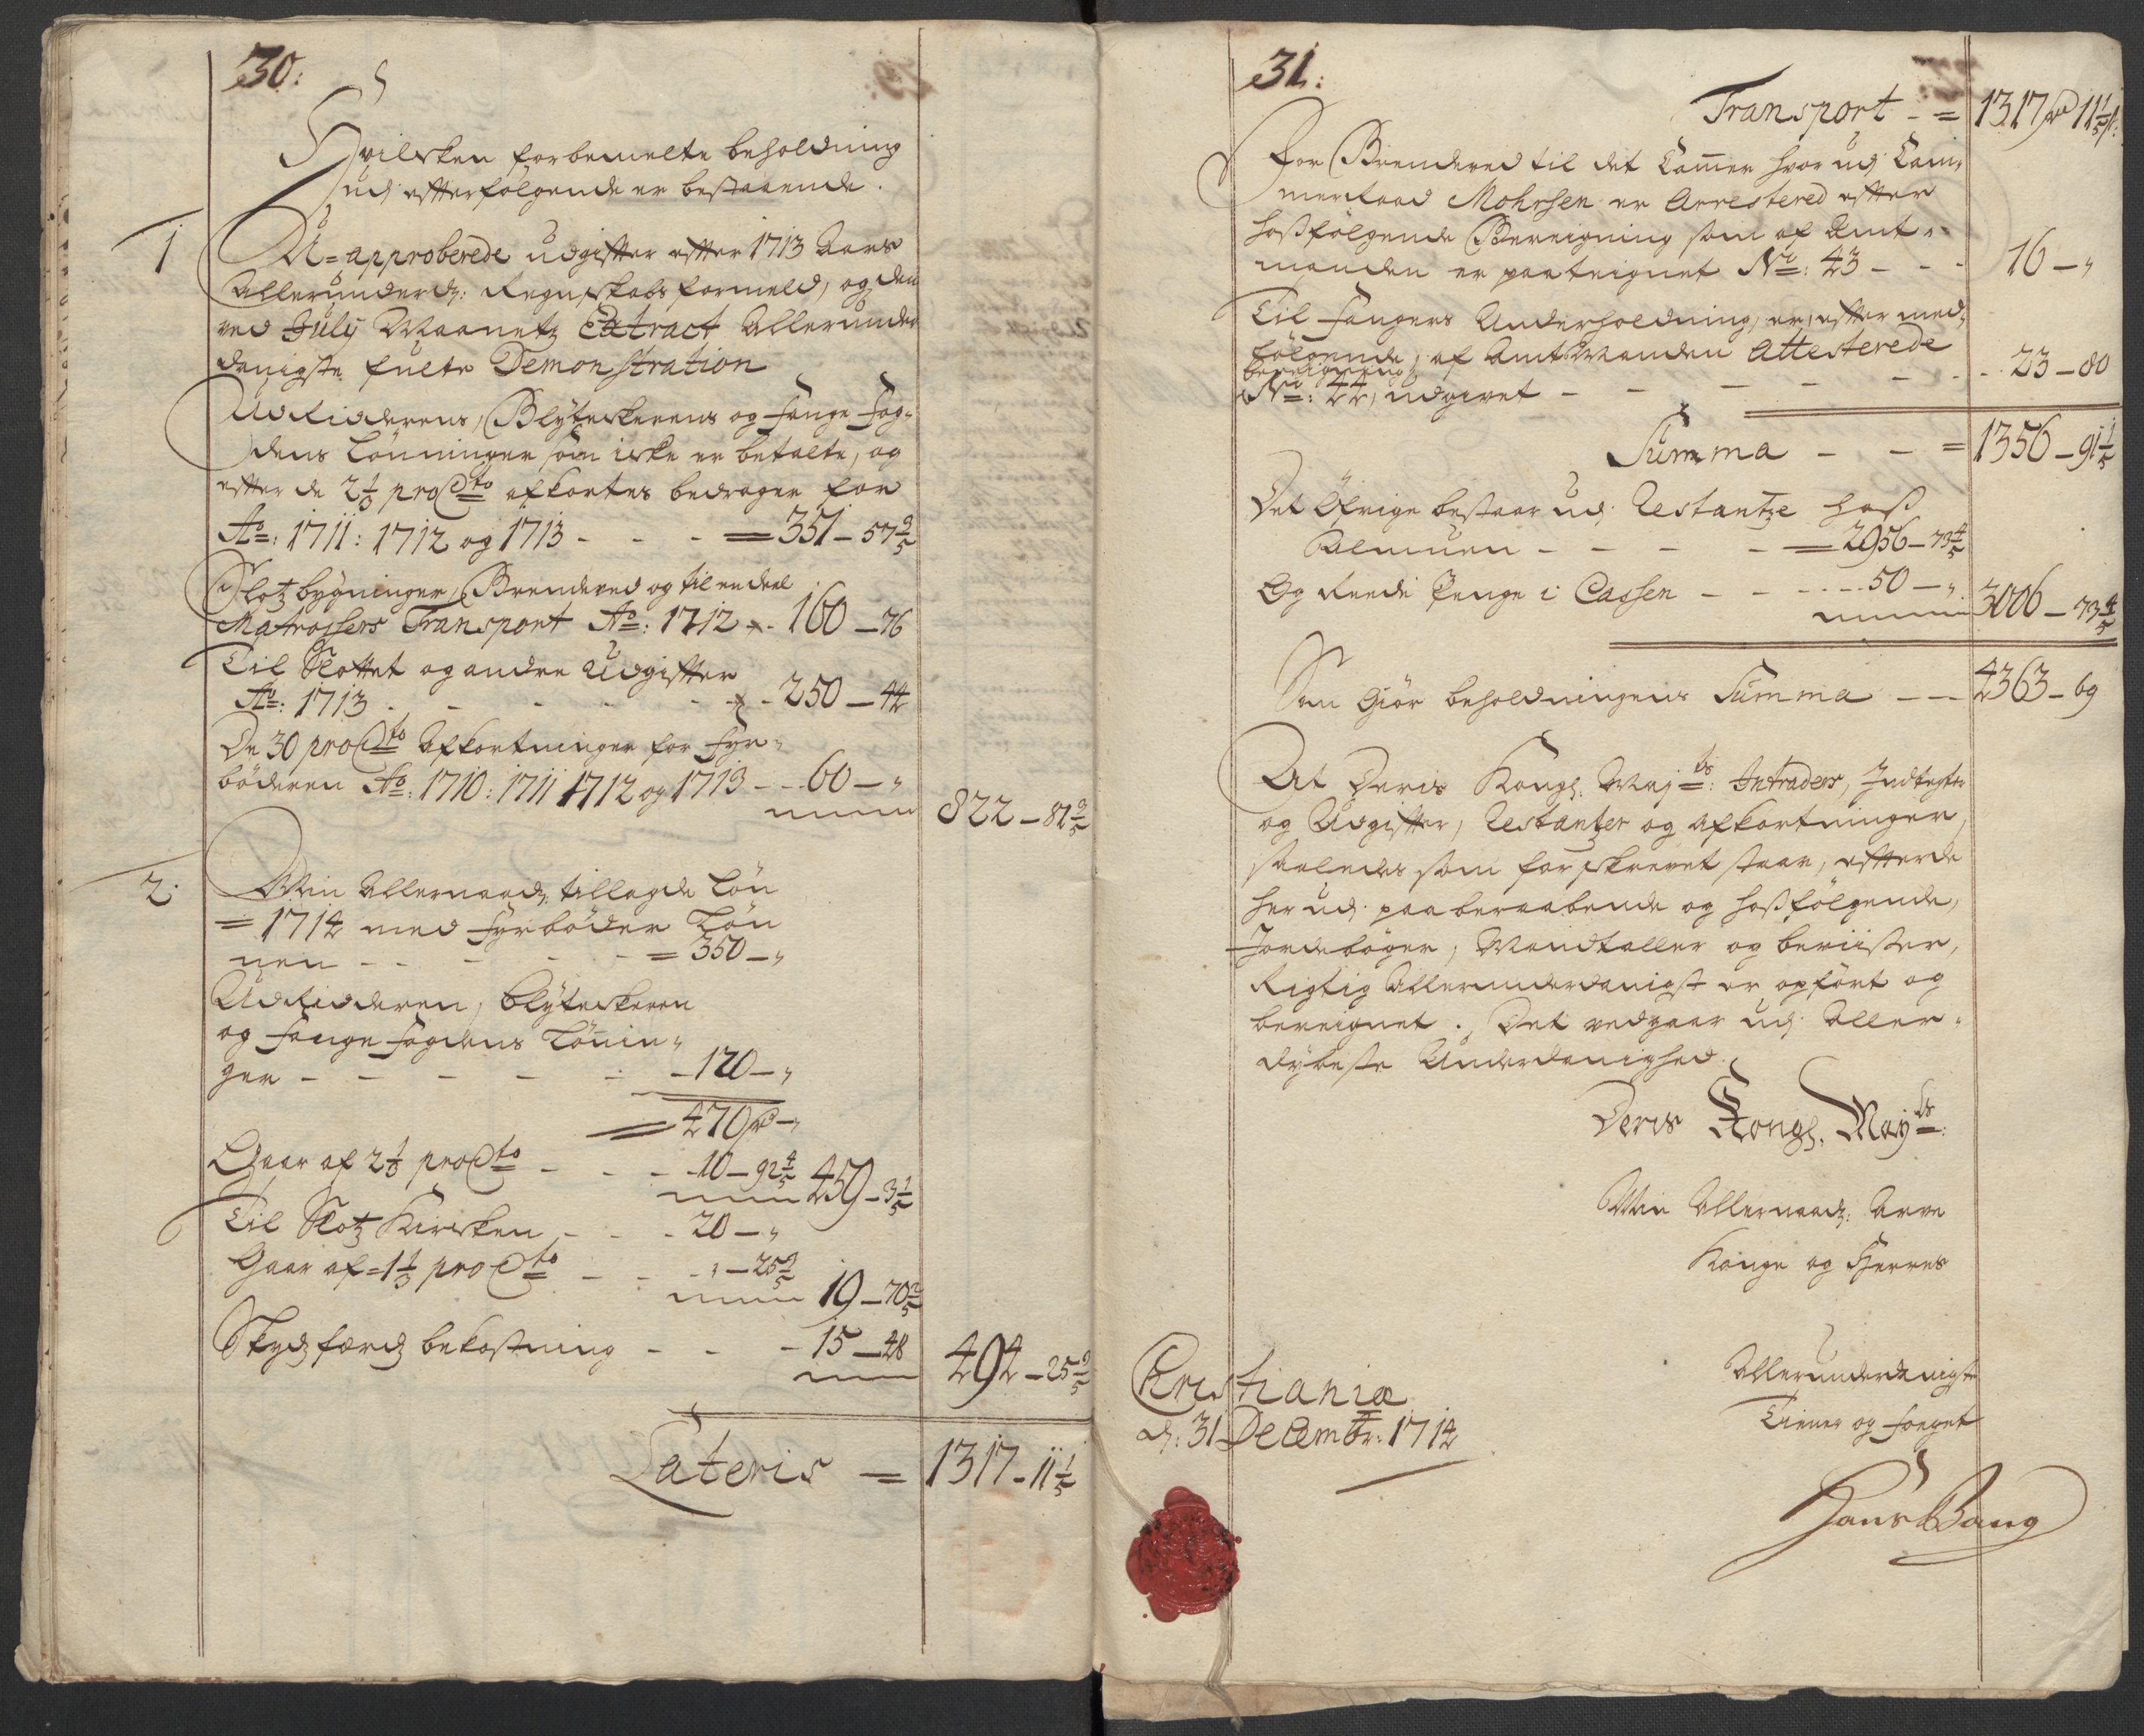 30:
Hvilcken forbemelte beholdning
udj effterfölgende er bestaaende.
1 U-approberede udgiffter effter 1713 Aars
Allerunderd: Regnskabs formeld, og den
ved Julij Maanetz Extract Allerunder
danigste fulte Demonstration
Udridderens, Blyteckerens og Fange Fog-
dens Lönninger som icke er betalte, og
effter de 2⅓ pro Cto afkortes bedrager for
Ao: 1711: 1712 og 1713 - - - = 351 - 57 3/5
Slotz bygninger, Brendeved og til en deel
Matrossers Transport Ao: 1712 - 160 - 76
Til Slottet og andre Udgiffter
Ao: 1713 - - - - - 250 - 44
De 30 pro Cto Afkortninger for Fyr-
böderen Ao: 1710: 1711 1712 og 1713 - - 60 - "
822 - 81 3/5
2. Min Allernaad: tillagde Lön
= 1714 med Fyrböder Lön
nen - - - - - = 350 - "
Udridderen, Blyteckeren
og Fange Fogdens Lönin-
ger - - - - - - 120 - "
= 470 rd - "
Gaar af 2⅓ pro Cto - - - 10 - 92 4/5 459 - 3 1/5
Til Slotz Kircken - - - 20 - "
Gaar af = 1⅓ pro Cto - - - " - 25 3/5
19 - 70 2/5
Skydsferdz bekostning - - - 15 - 48
494 - 25 3/5
Lateris = 1317 - 11 1/5
31:
Transport - = 1317 rd 11 1/5 s:
For Brendeved til det Camer hvor udj Cam-
merraad Mohrsen er Arrestered effter
hosfölgende Bereigning som af Amt-
manden er paateignet No: 43 - - - 16 - "
Til Fangers Underholdning, er, effter med-
fölgende, af Amtmanden Attesterede
bereigning
No: 44, udgivet - - - - - - 23 - 80
Summa - - = 1356 - 91 1/5
Det Öfrige bestaar udj Restantze hos
Almuen - - - - = 2956 - 73 4/5
Og Reede Penge i Cassen - - - - 50 - "
3006 - 73 4/5
Som Giör beholdningens Summa - - 4363 - 69
At Deris Kongl. Maj:ts: Intrader, Indtegter
og Udgiffter, Restantzer og afkortninger,
saaledes som forskrevet staar, effter de
her udj paaberaabende og hosfölgende,
Jordeböger, Mandtaller og beviisser,
Rigtig Allerunderdanigst er opfört og
bereignet. Det vedgaar udj Aller-
dybeste Underdanighed.
Deris Kongl. May:ts:
Min Allernaad: Arve
Konge og Herres
Allerunderdanigste
Tiener og Foeget
Christianiæ
d: 31 Decembr: 1714
Hans Bang